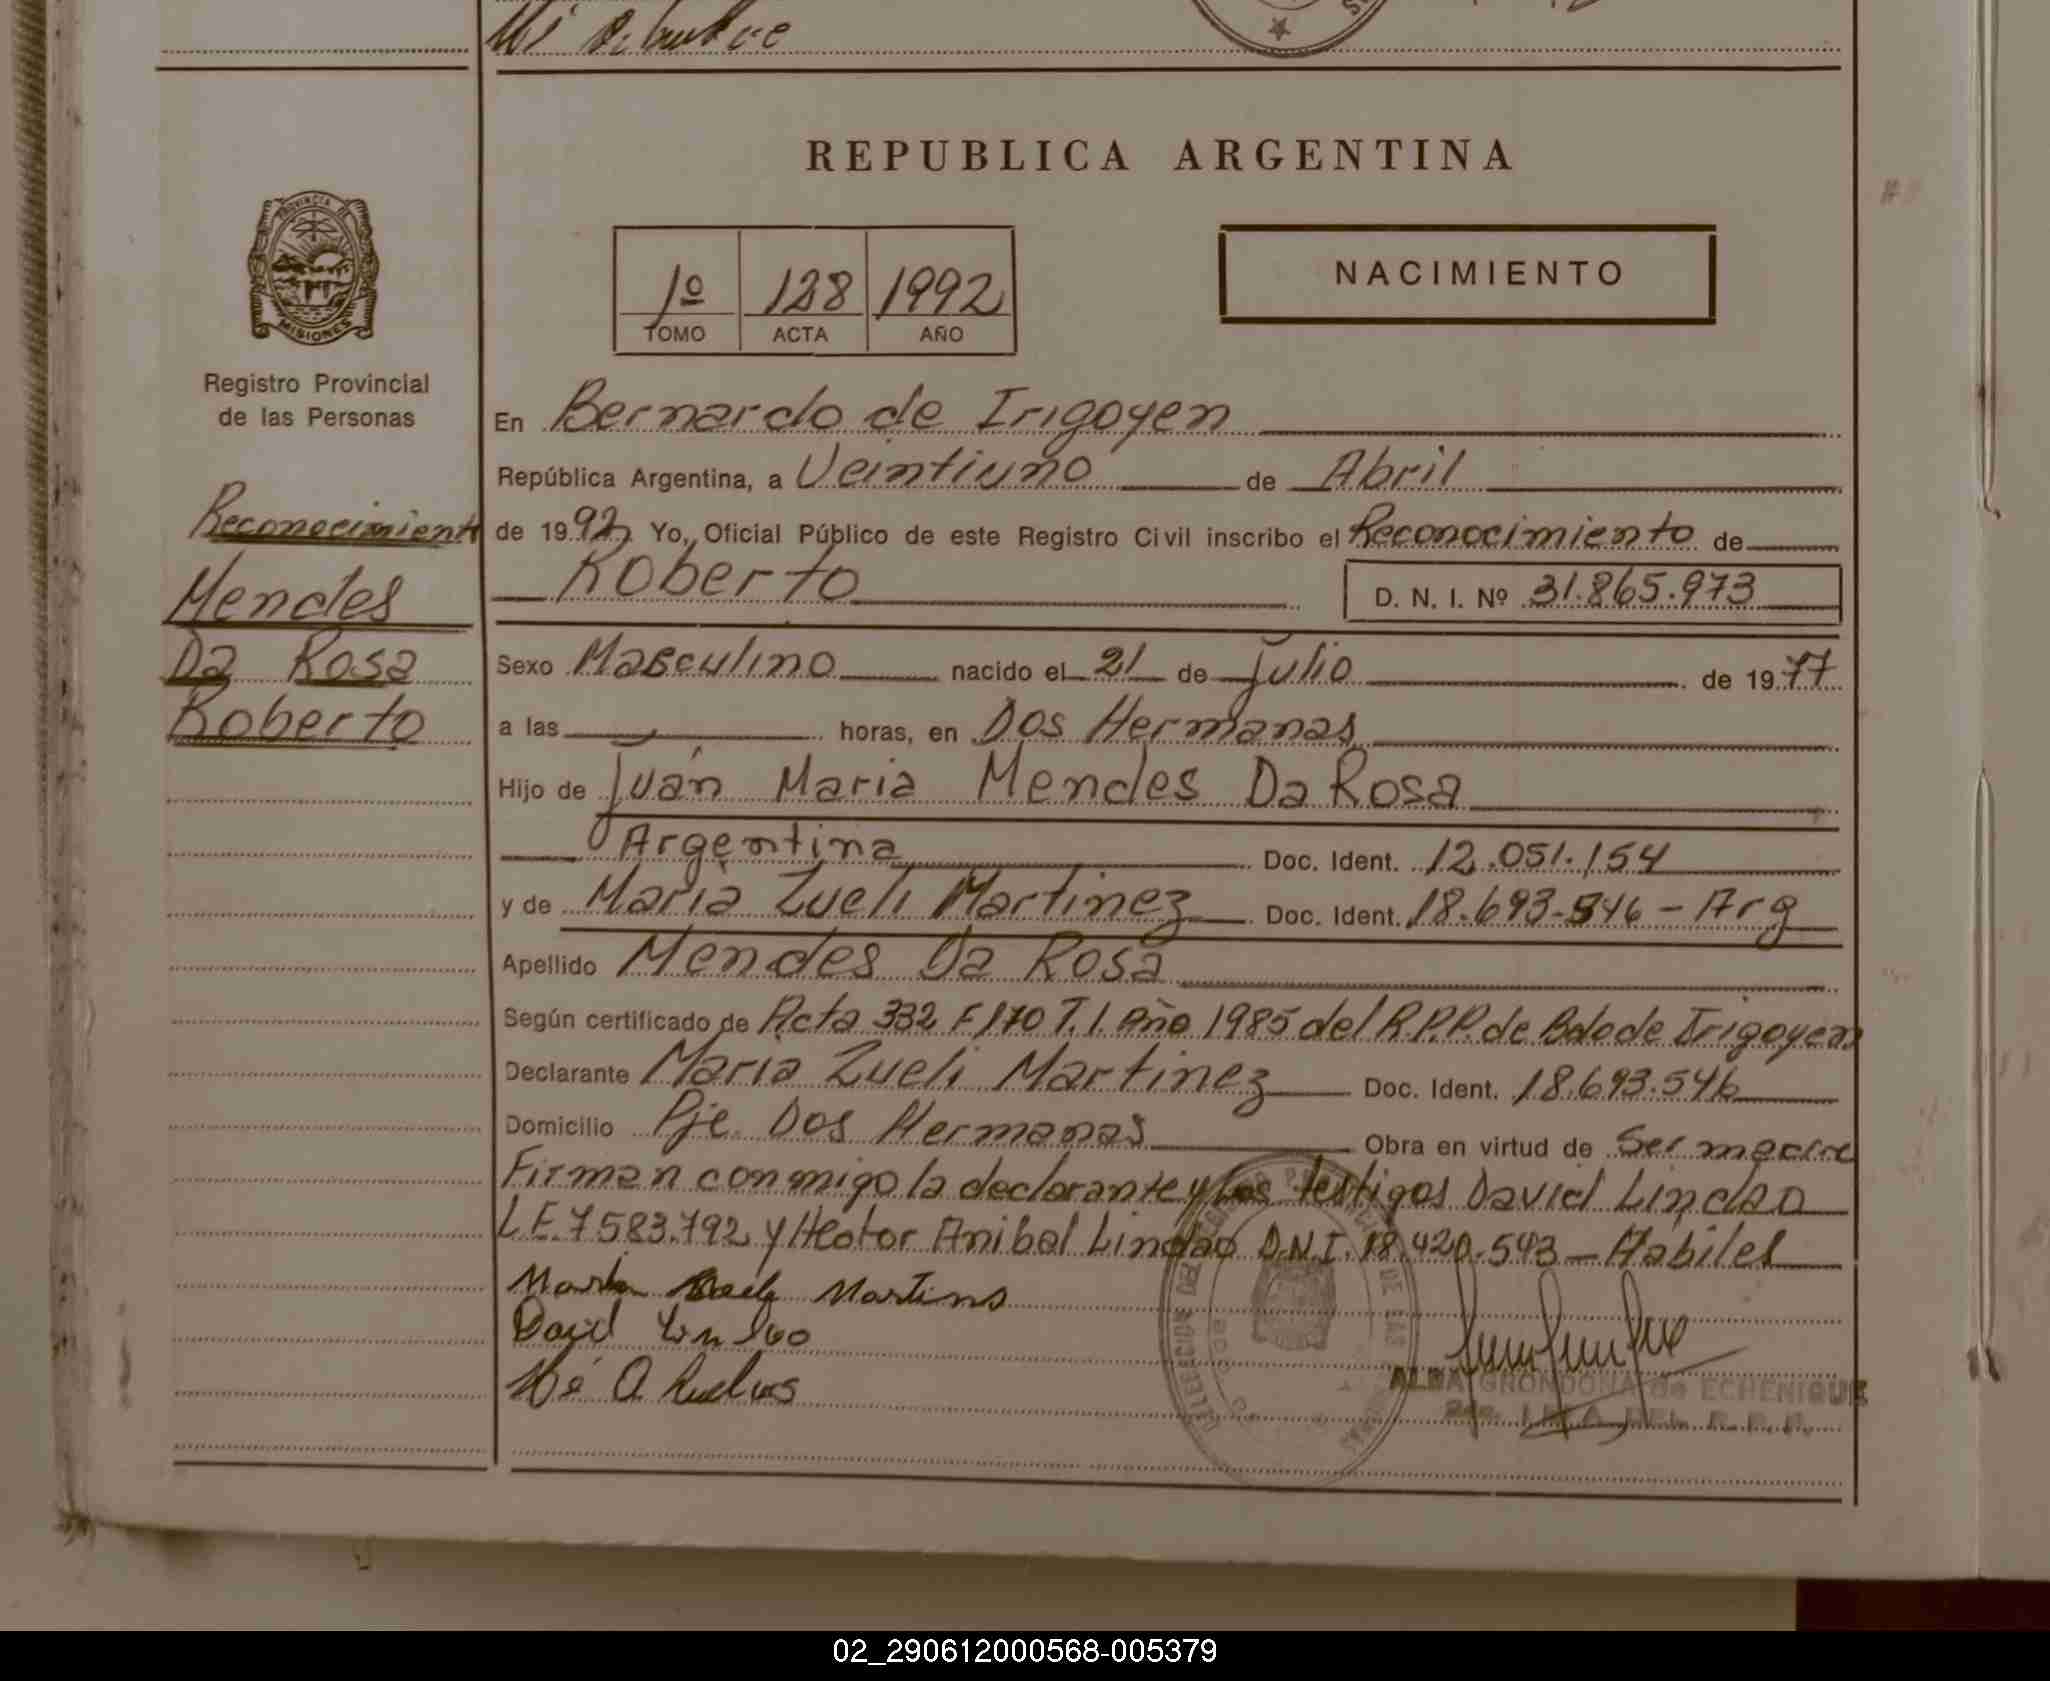 REPUBLICA ARGENTINA
1º 128 1992
TOMO ACTA AÑO
NACIMIENTO
PROVINCIA DE
MISIONES
Registro Provincial
de las Personas
Reconocimiento
Mendes
Da Rosa
Roberto
En Bernardo de Irigoyen
República Argentina, a Veintiuno de Abril
de 1992 Yo, Oficial Público de este Registro Civil inscribo el Reconocimiento de
Roberto D. N. I. Nº 31.865.973
Sexo Masculino nacido el 21 de Julio de 1977
a las horas, en Dos Hermanas
Hijo de Juán Maria Mendes Da Rosa
Argentina Doc. Ident. 12.051.154
y de Maria Zueli Martinez Doc. Ident. 18.693.546 - Arg
Apellido Mendes Da Rosa
Según certificado de Acta 332 F 170 T. I. Año 1985 del R.P.P. de Bdo de Irigoyen
Declarante Maria Zueli Martinez Doc. Ident. 18.693.546
Domicilio Pje Dos Hermanas Obra en virtud de Ser madre
Firman conmigo la declarante y los testigos David Lindao
L.E. 7583.792 y Hector Anibal Lindao D.N.I. 18.420.543 - Habiles
Martins
David
ALBA GRONDONA de ECHENIQUE
DEL R. P. P.
02_290612000568-005379